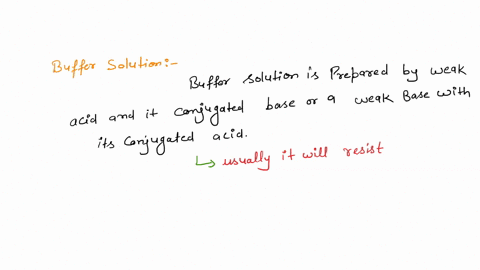 Buffer Solution:-
Buffer solution is Prepared by weak
acid and it conjugated base or a weak Base with
its conjugated acid.
↳ usually it will resist